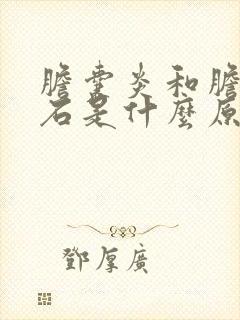 膽囊炎和膽
石是什麼原
鄧厚廣